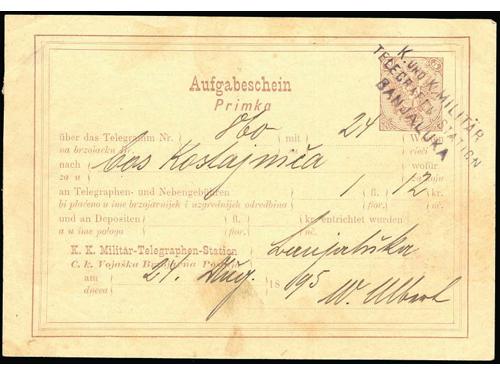 K. UND K. MILITÄR
TELEGRAFEN-STATION
BANJALUKA
Aufgabeschein
Primka
über das Telegramm Nr. 860 mit 24
na brzojavku Br. rieči
nach Bos Kostajnica wofür
za u za koju
an Telegraphen- und Nebengebühren fl. 1 12 kr.
bi plaćeno u ime brzojavnijeh i uzgrednijeh odredbina fior. nč.
und an Depositen fl. kr. entrichtet wurden
a u ime pologa fior. nč.
K. K. Militär-Telegraphen-Station Banjaluka
C. k. Vojaška Brzojavna Postaja
am 21. Aug. 1895 W. Albert
dneva